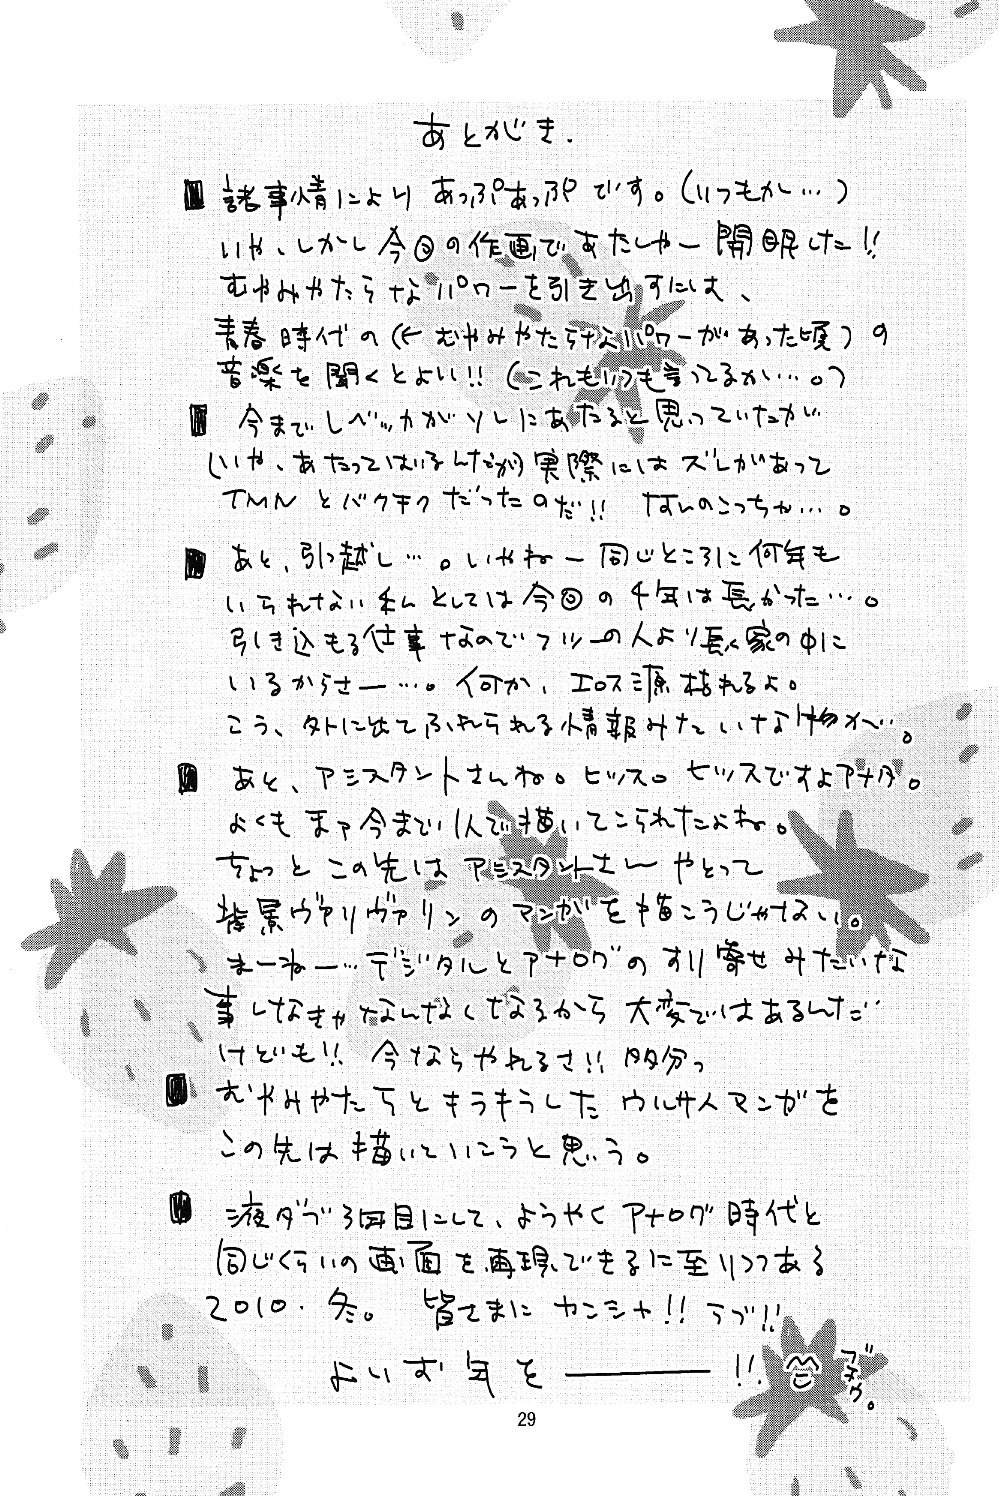 あとがき.
諸事情によりあっぷあっぷです。(いつもか…)
いや、しかし今回の作画であたしゃー開眼した!!
むやみやたらなパワーを引き出すには、
青春時代の(←むやみやたらなパワーがあった頃)の
音楽を聞くとよい!!(これもいつも言ってるか…。)
今までレベッカがソレにあたると思っていたが
(いや、あたってはいるんだが)実際にはズレがあって
TMNとバクチクだったのだ!! なんのこっちゃ…。
あと、引っ越し…。いやねー同じところに何年も
いられない私としては今回の4年は長かった…。
引き込もる仕事なのでフツーの人より長く家の中に
いるからさー…。何か、エロス源枯れるよ。
こう、外に出てふれられる情報みたいな物が…。
あと、アシスタントさんね。ヒッス。ヒッスですよアナタ。
よくもまァ今まで1人で描いてこられたよね。
ちょっとこの先はアシスタントさんやとって
背景ヴァリヴァリンのマンガを描こうじゃない。
まーねー…デジタルとアナログのすり寄せみたいな
事しなきゃなんなくなるから大変ではあるんだ
けども!! 今ならやれるさ!! 多分っ
むやみやたらとキラキラしたウルサイマンガを
この先は描いていこうと思う。
液タブ3回目にして、ようやくアナログ時代と
同じくらいの画面を再現できるに至りつつある
2010.冬。 皆さまにカンシャ!! ラブ!!
よいお年を――――!!
ブチゥ。
29